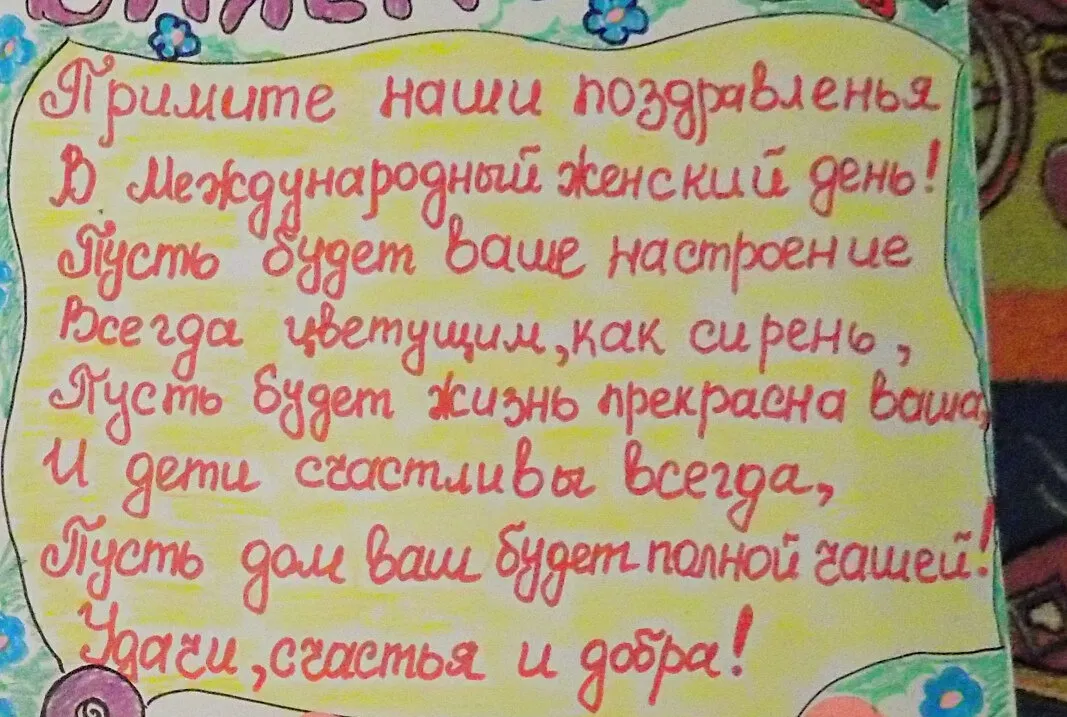 Примите наши поздравленья
В Международный женский день!
Пусть будет ваше настроение
Всегда цветущим, как сирень,
Пусть будет жизнь прекрасна ваша,
И дети счастливы всегда,
Пусть дом ваш будет полной чашей!
Удачи, счастья и добра!